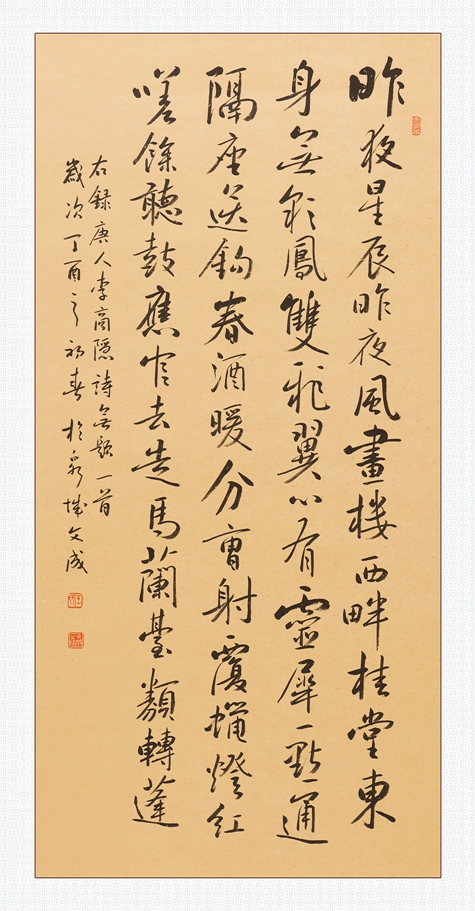 昨夜星辰昨夜風畫樓西畔桂堂東
身無彩鳳雙飛翼心有靈犀一點通
隔座送鈎春酒暖分曹射覆蠟燈紅
嗟餘聽鼓應官去走馬蘭臺類轉蓬
右録唐人李商隱詩無題一首
歲次丁酉之初春於泉城文成